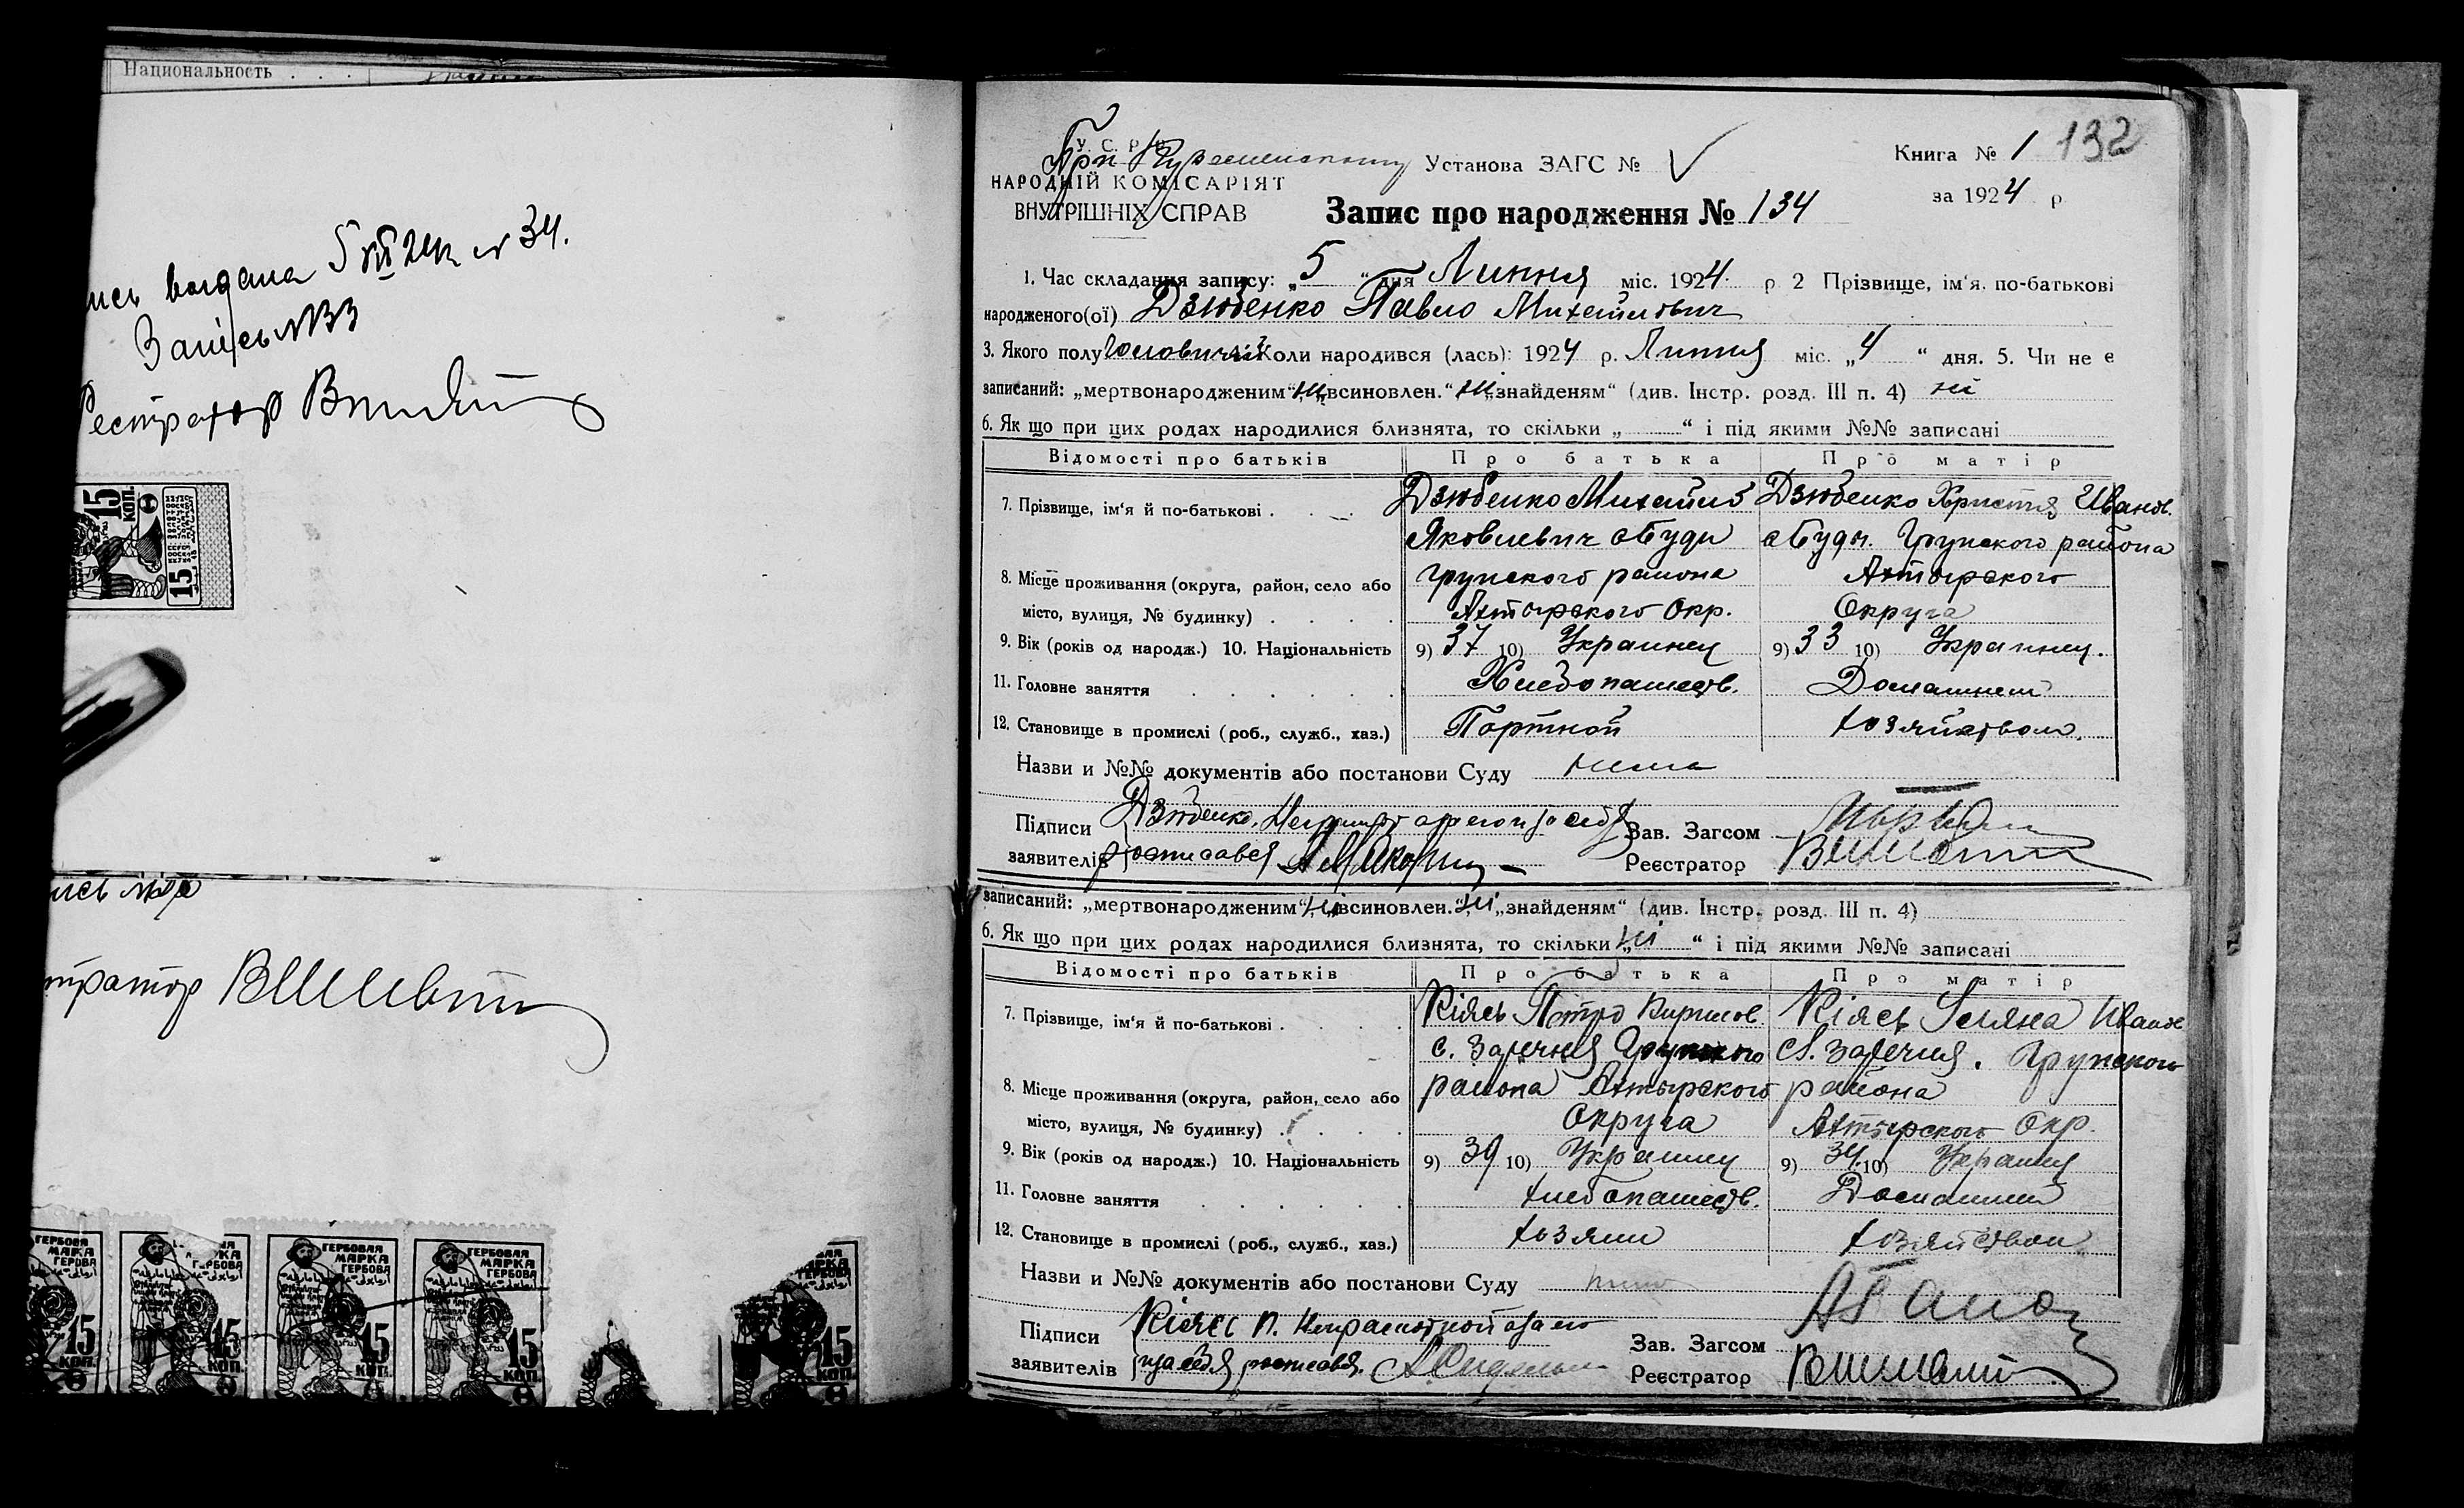 Национальность
выдана 5 VII 24 г. № 34.
Запісь № 133
Реєстратор
15 КОП.
15
ГЕРБОВАЯ МАРКА ГЕРБОВА
15 КОП.
ГЕРБОВАЯ МАРКА ГЕРБОВА
15 КОП.
ГЕРБОВАЯ МАРКА ГЕРБОВА
15 КОП.
ГЕРБОВАЯ МАРКА ГЕРБОВА
15 КОП.
15 КОП.
У. С. Р. Р.
При Установа ЗАГС № Книга № 1 132
НАРОДНІЙ КОМІСАРІЯТ
ВНУТРІШНІХ СПРАВ Запис про народження № 134 за 1924 р
1. Час складання запису: „5“ дня Липня міс. 1924 р 2 Прізвище, ім‘я, по-батькові
народженого(ої) Дзюбенко Павло Михайлович
3. Якого полу Коли народився (лась): 1924 р. Липня міс. „4“ дня. 5. Чи не є
записаний: „мертвонародженим“ ні „всиновлен.“ ні „знайденям“ (див. Інстр. розд. III п. 4) ні
6. Як що при цих родах народилися близнята, то скільки „ “ і під якими №№ записані
Відомості про батьків Про батька Про матір
7. Прізвище, ім‘я й по-батькові Дзюбенко Михайло Дзюбенко Христя Иванов.
Яковлевич с. Буди с. Буды. Грунского района
8. Місце проживання (округа, район, село або Грунского района Ахтырского
місто, вулиця, № будинку) Ахтырского Окр. Округа
9. Вік (років од народж.) 10. Національність 9) 37 10) Украинец 9) 33 10) Украинец.
11. Головне заняття Хлебопашеств. Домашнем
12. Становище в промислі (роб., служб., хаз.) Портной хозяйством.
Назви и №№ документів або постанови Суду нима
Підписи Дзюбенко, Неграмот а за его
заявителів росписався Зав. Загсом
Реєстратор
записаний: „мертвонародженим“ ні „всиновлен.“ ні „знайденям“ (див. Інстр. розд. III п. 4)
6. Як що при цих родах народилися близнята, то скільки „ні“ і під якими №№ записані
Відомості про батьків Про батька Про матір
7. Прізвище, ім‘я й по-батькові Кіясь Петро Кирилов. Кіясь Уляна Иванов
с. Заречня Грунского с. Заречия. Грунского
8. Місце проживання (округа, район, село або района Ахтырского района
місто, вулиця, № будинку) Округа Ахтырского Окр.
9. Вік (років од народж.) 10. Національність 9) 39 10) Украинец 9) 34 10) Украинец
11. Головне заняття хлебопашеств. Домашним
12. Становище в промислі (роб., служб., хаз.) хозяин хозяйством
Назви и №№ документів або постанови Суду
Підписи Кіясь П. Неграмотной а за его
заявителів росписався. Зав. Загсом
Реєстратор